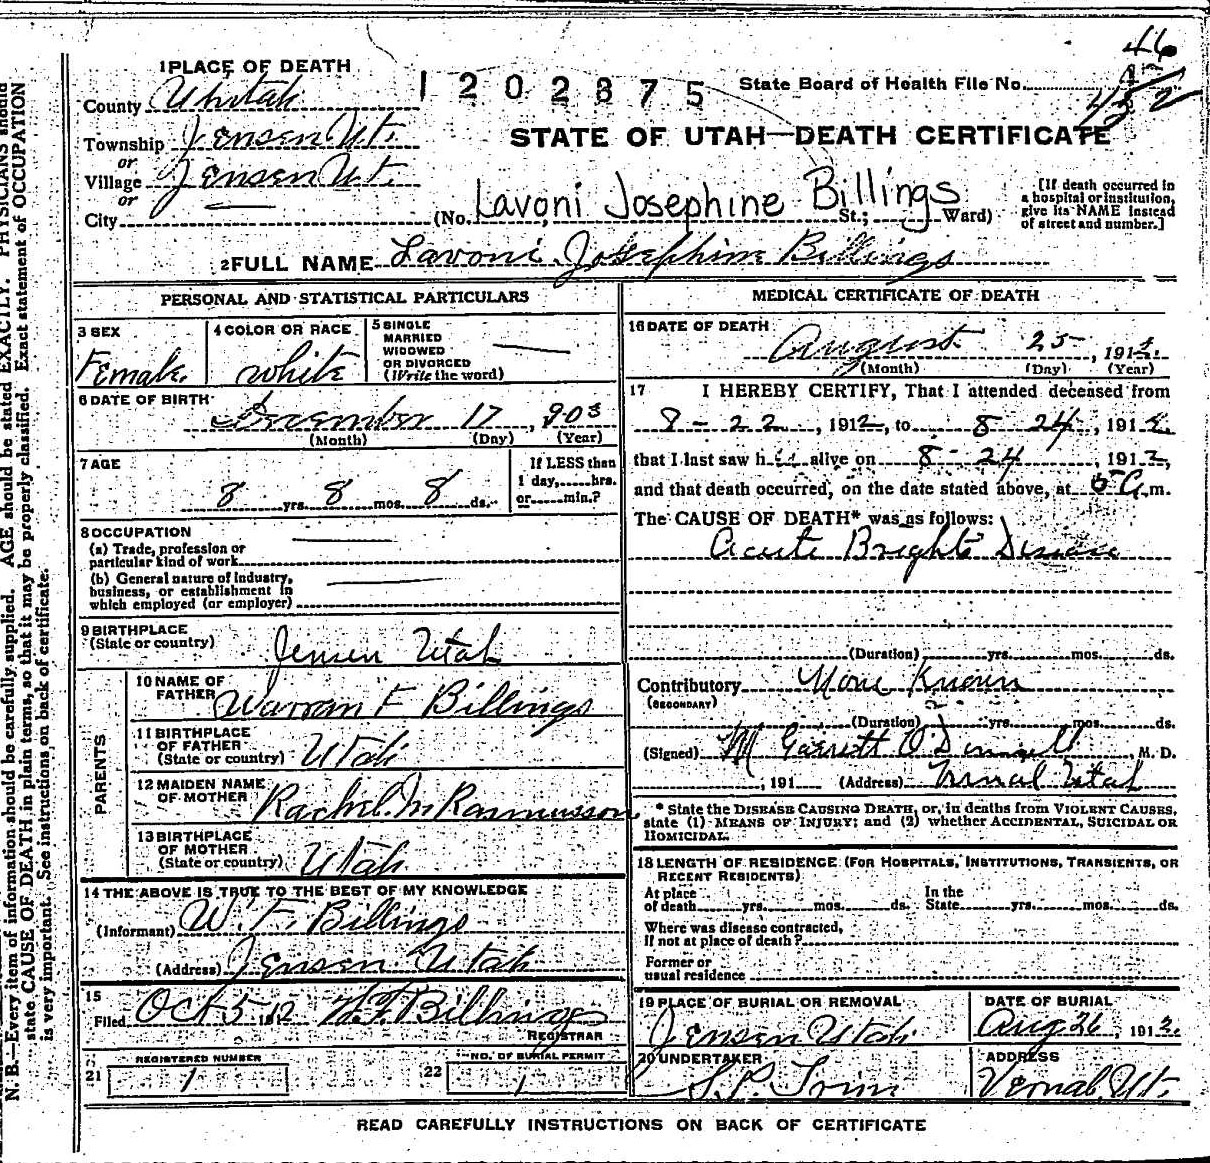 46
1 PLACE OF DEATH
1 2 0 2 8 7 5
State Board of Health File No.
452
County Uhitah
Township Jensen Ut.
or
Village Jensen Ut.
or
City
STATE OF UTAH—DEATH CERTIFICATE
(No. Lavoni Josephine Billings St.; Ward)
[If death occurred in
a hospital or institution,
give its NAME instead
of street and number.]
2 FULL NAME Lavoni Josephine Billings
PERSONAL AND STATISTICAL PARTICULARS
3 SEX
Female.
4 COLOR OR RACE
white
5 SINGLE
MARRIED
WIDOWED
OR DIVORCED
(Write the word)
6 DATE OF BIRTH
December 17, 903
(Month) (Day) (Year)
7 AGE
8 yrs. 8 mos. 8 ds.
If LESS than
1 day, hrs.
or min.?
8 OCCUPATION
(a) Trade, profession or
particular kind of work
(b) General nature of industry,
business, or establishment in
which employed (or employer)
9 BIRTHPLACE
(State or country)
Jensen Utah
PARENTS
10 NAME OF
FATHER
Warran F Billings
11 BIRTHPLACE
OF FATHER
(State or country)
Utah
12 MAIDEN NAME
OF MOTHER
Rachel M Rasmusson
13 BIRTHPLACE
OF MOTHER
(State or country)
Utah.
14 THE ABOVE IS TRUE TO THE BEST OF MY KNOWLEDGE
(Informant) W. F. Billings
(Address) Jensen Utah
15
Filed Oct 5, 1912 W.F. Billings
REGISTRAR
21
REGISTERED NUMBER
1
22
NO. OF BURIAL PERMIT
1
MEDICAL CERTIFICATE OF DEATH
16 DATE OF DEATH
August 25, 1912.
(Month) (Day) (Year)
17 I HEREBY CERTIFY, That I attended deceased from
8-22, 1912, to 8 24, 1912.
that I last saw h alive on 8-24, 1912,
and that death occurred, on the date stated above, at 5 a.m.
The CAUSE OF DEATH* was as follows:
Acute Brights Disease
(Duration) yrs. mos. ds.
Contributory None Known
(SECONDARY)
(Duration) yrs. mos. ds.
(Signed) M Garrett O'Donnell, M. D.
, 191 (Address) Vernal Utah
* State the DISEASE CAUSING DEATH, or, in deaths from VIOLENT CAUSES,
state (1) MEANS OF INJURY; and (2) whether ACCIDENTAL, SUICIDAL OR
HOMICIDAL.
18 LENGTH OF RESIDENCE (FOR HOSPITALS, INSTITUTIONS, TRANSIENTS, OR
RECENT RESIDENTS)
At place
of death yrs. mos. ds.
In the
State yrs. mos. ds.
Where was disease contracted,
If not at place of death?
Former or
usual residence
19 PLACE OF BURIAL OR REMOVAL
Jensen Utah.
DATE OF BURIAL
Aug 26, 1912.
20 UNDERTAKER
S.P.
ADDRESS
Vernal, Ut.
READ CAREFULLY INSTRUCTIONS ON BACK OF CERTIFICATE
N. B.—Every item of information should be carefully supplied. AGE should be stated EXACTLY. PHYSICIANS should
state CAUSE OF DEATH in plain terms, so that it may be properly classified. Exact statement of OCCUPATION
is very important. See instructions on back of certificate.